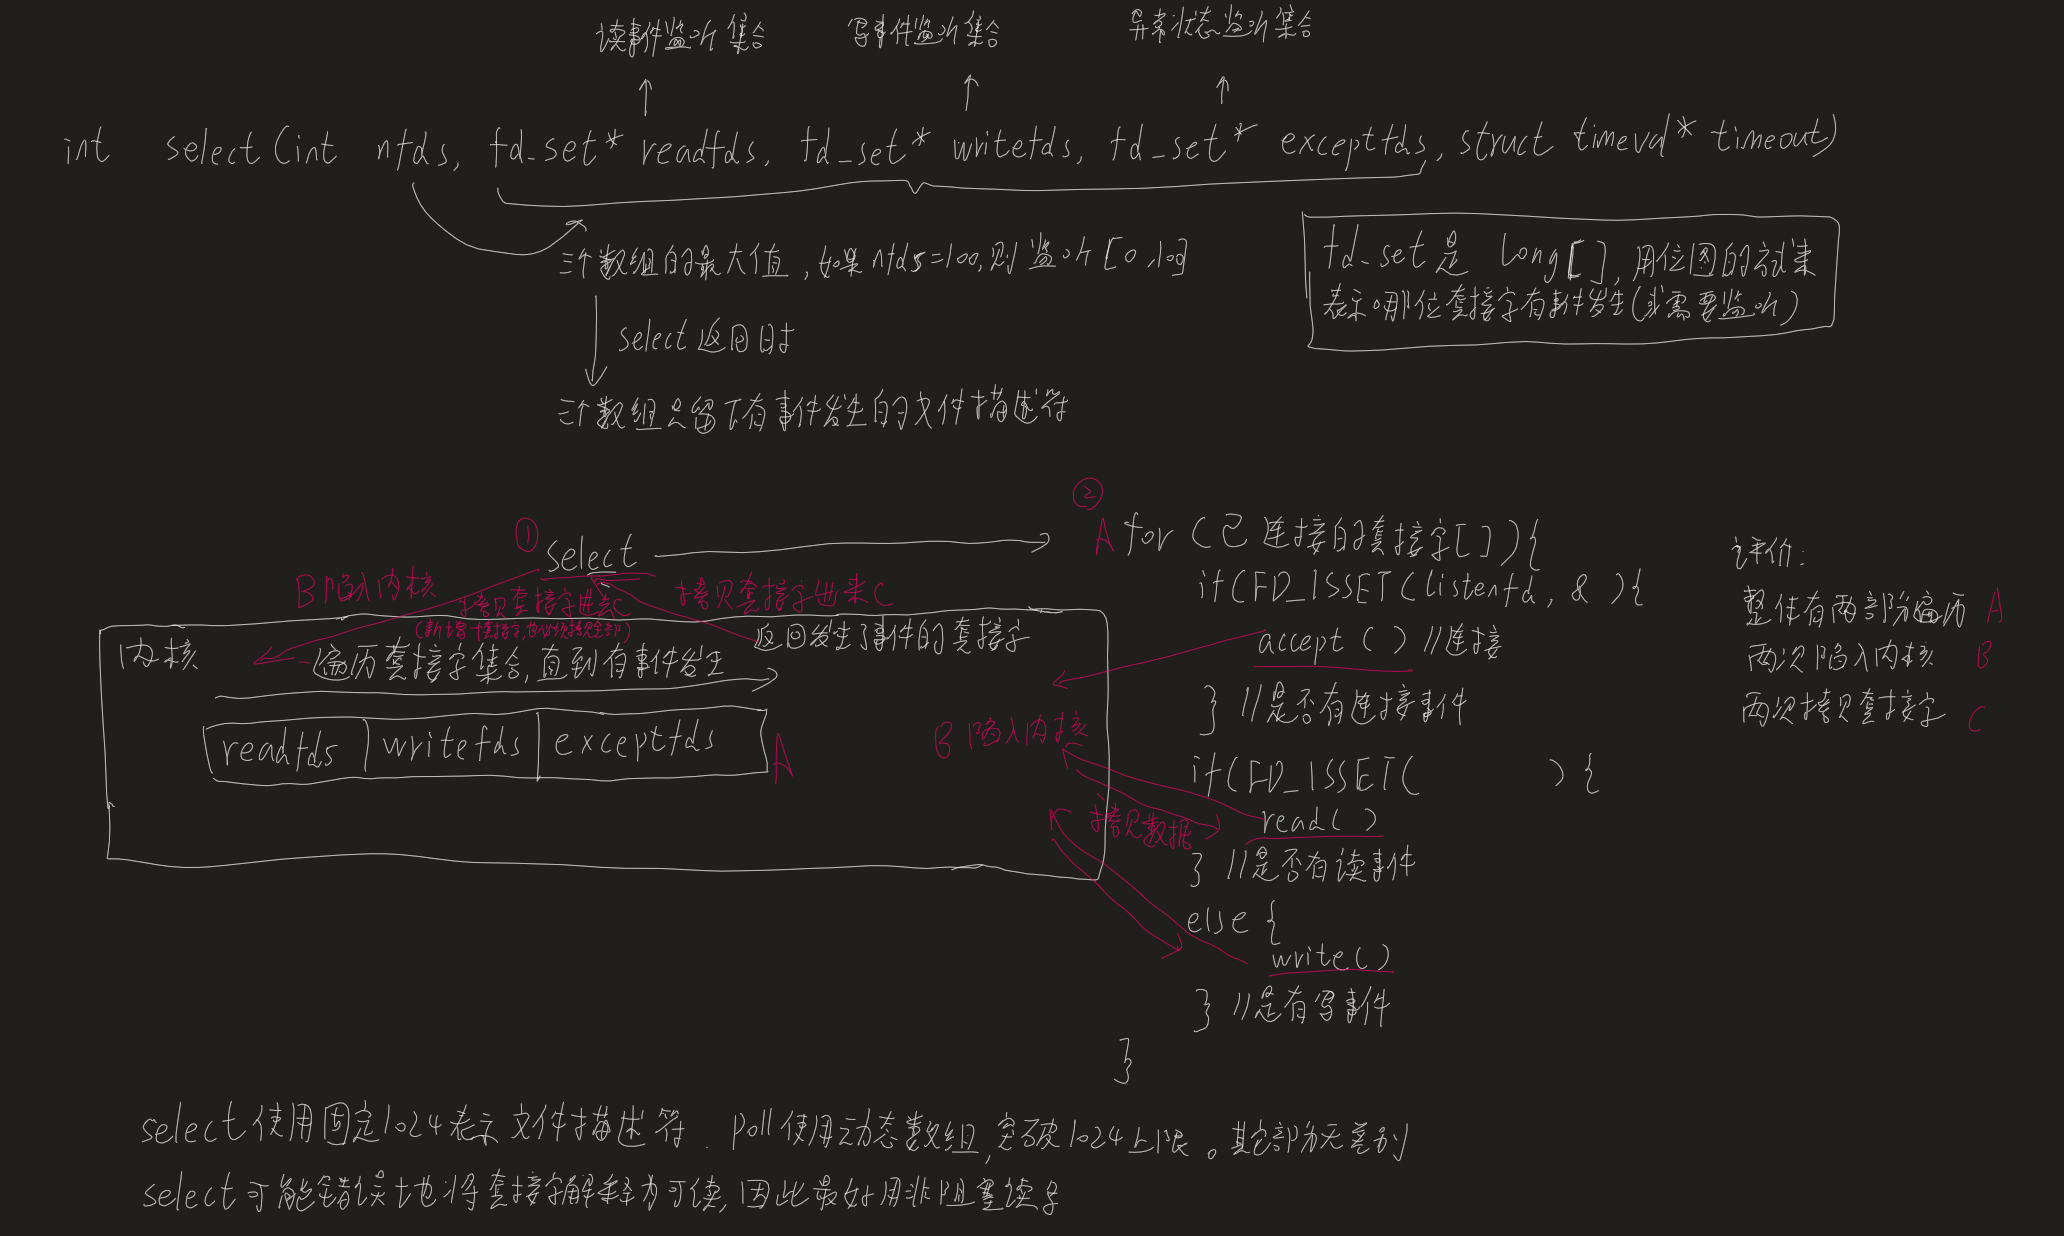 读事件监听集合 写事件监听集合 异常状态监听集合
int select(int nfds, fd_set* readfds, fd_set* writefds, fd_set* exceptfds, struct timeval* timeout)
三个数组的最大值,如果nfds=100,则监听[0,100]
fd_set是 long[],用位图的方式来
表示哪位套接字有事件发生(或需要监听)
select返回时
三个数组只留下有事件发生的文件描述符
① select
B陷入内核
拷贝套接字进去C
(新增一个套接字,也必须拷贝全部)
拷贝套接字出来C
内核
遍历套接字集合,直到有事件发生
返回发生了事件的套接字
readfds writefds exceptfds A
B 陷入内核
拷贝数据
②
A for(已连接的套接字[]){
if(FD_ISSET(listenfd, & ){
accept() //连接
} //是否有连接事件
if(FD_ISSET( ){
read()
} //是否有读事件
else {
write()
} //是有写事件
}
评价:
整体有两部分遍历 A
两次陷入内核 B
两次拷贝套接字 C
select使用固定1024表示文件描述符. poll使用动态数组,突破1024上限。其它部分无差别
select可能错误地将套接字解释为可读,因此最好用非阻塞读写